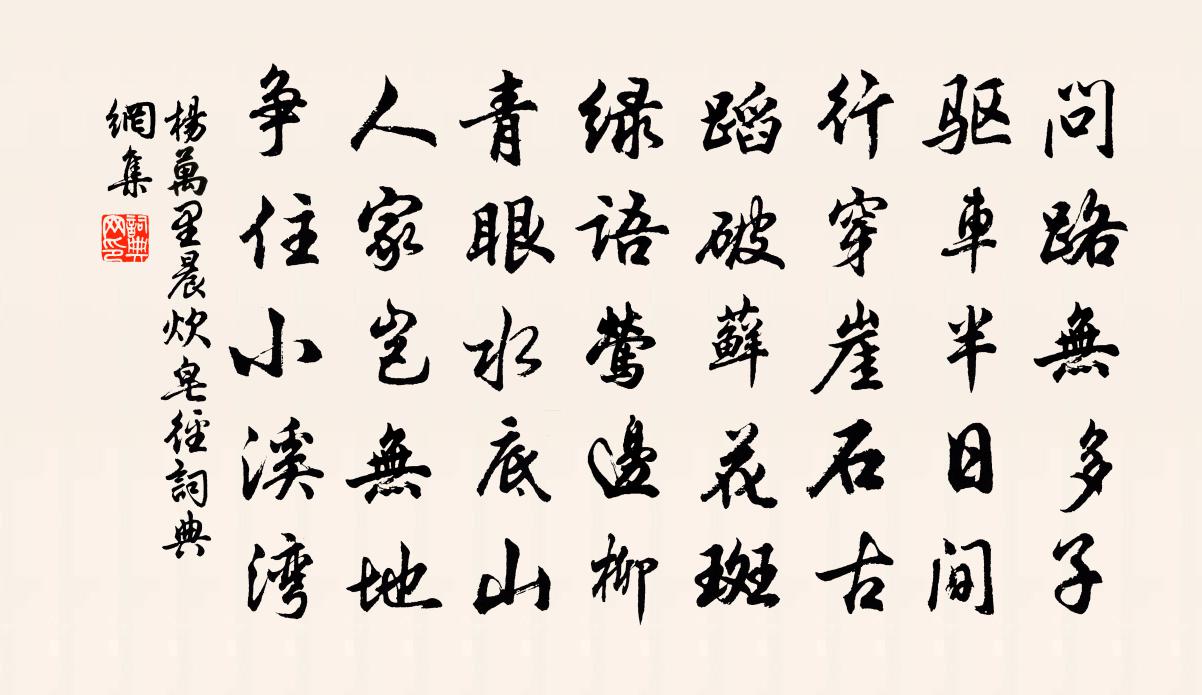 問路無多子
驱車半日间
行穿崖石古
蹈破蘚花斑
绿语莺邊柳
青眼水底山
人家岂無地
争住小溪湾
楊萬里晨炊皂徑詞典
網集
詞典
网印